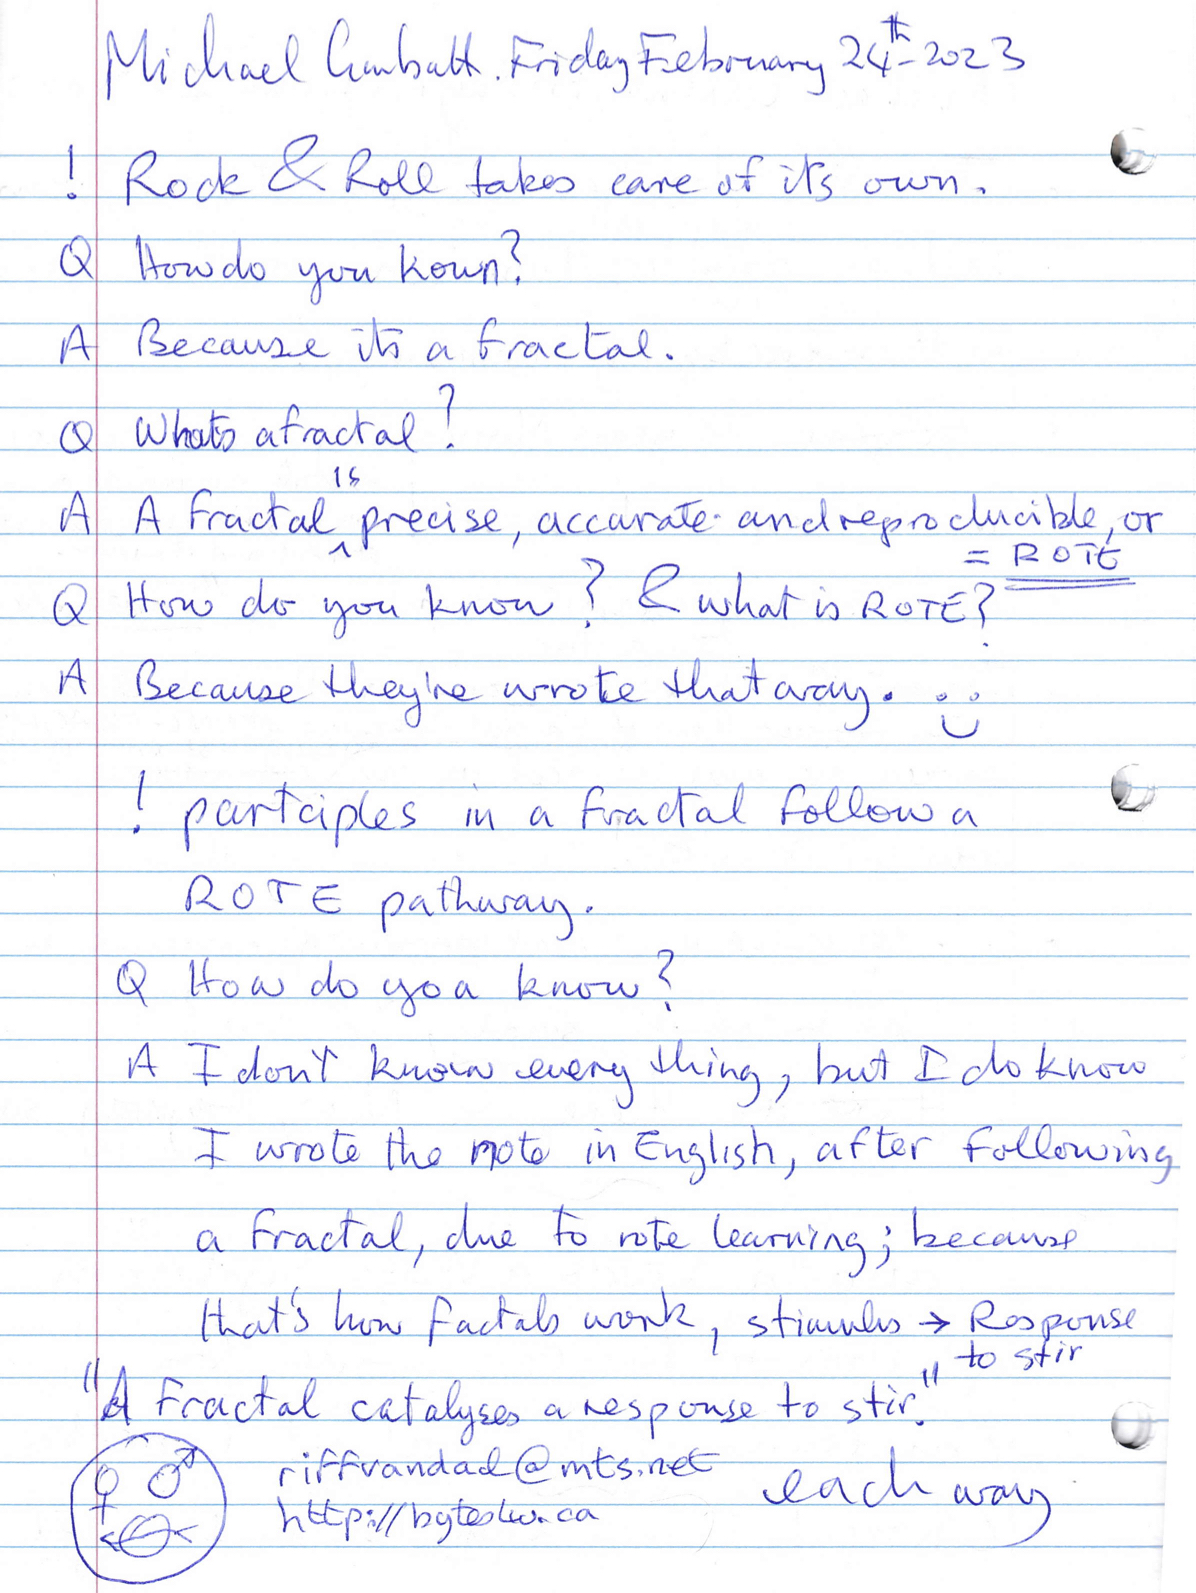 Michael . Friday February 24th - 2023
! Rock & Roll takes care of its own.
Q How do you kown?
A Because its a fractal.
Q Whats a fractal?
is
A A fractal ^ precise, accurate and reproducible, or
= ROTE
Q How do you know? & what is ROTE?
A Because they're wrote that way.
! partciples in a fractal follow a
ROTE pathway.
Q How do you know?
A I don't know every thing, but I do know
I wrote the note in English, after following
a fractal, due to rote learning; because
that's how factals work, stimulus → Response
to stir
"A fractal catalyses a response to stir."
riffvandad@mts.net
each way